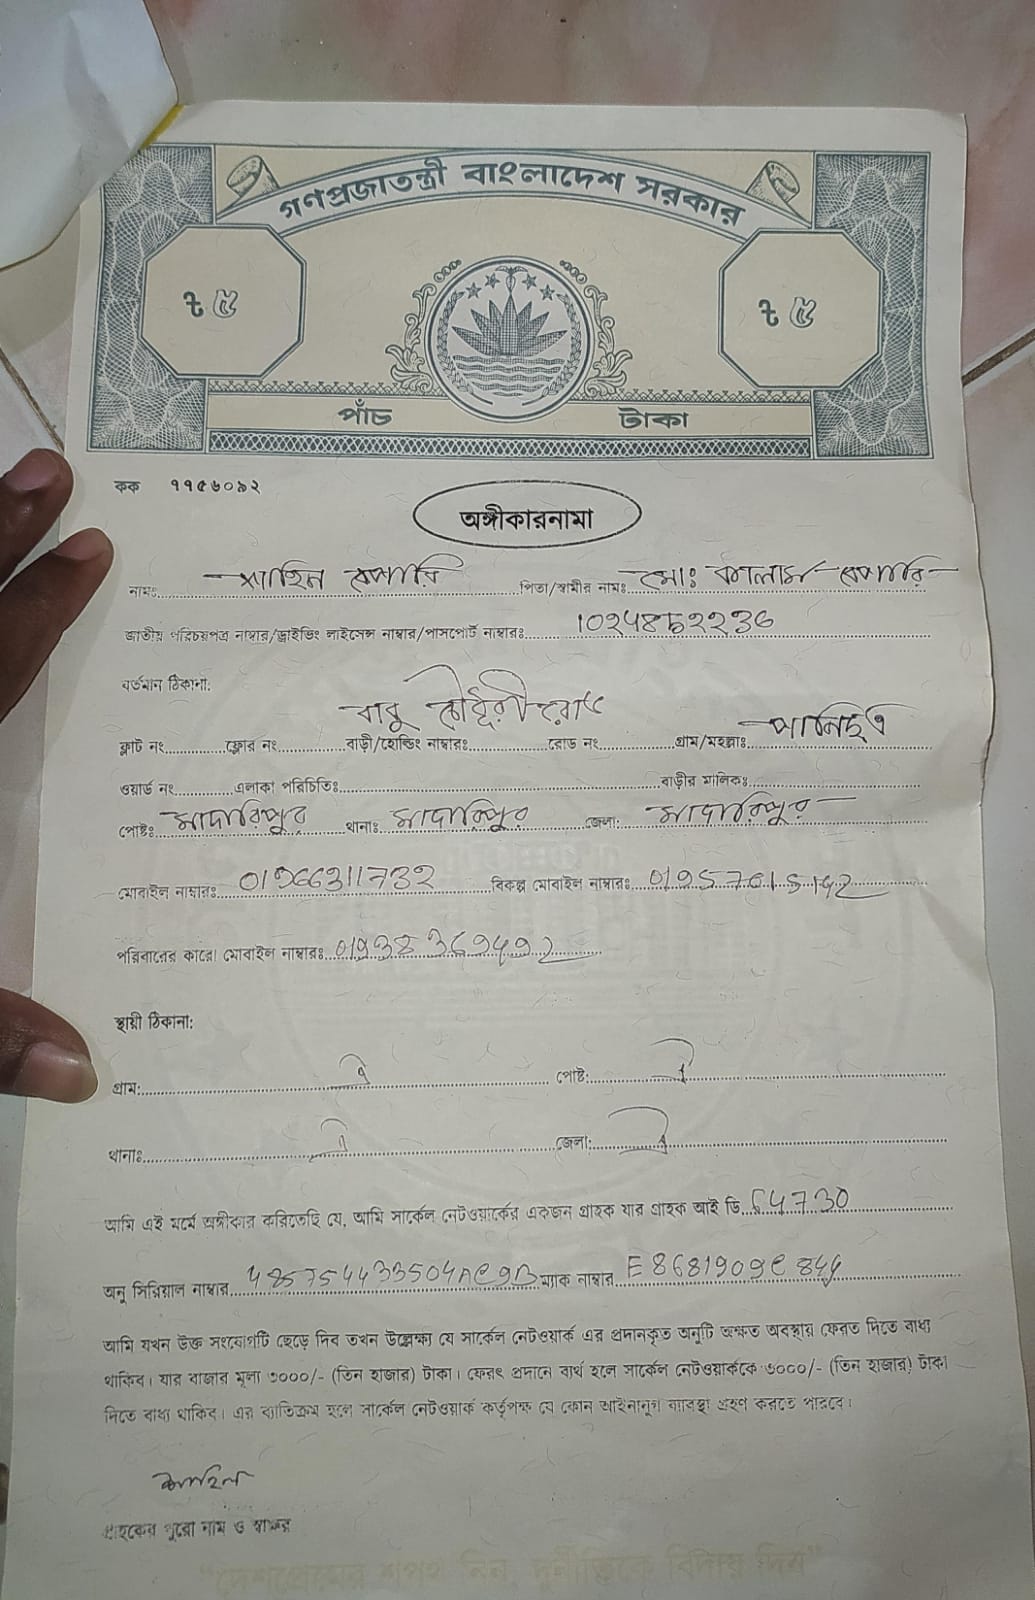 গণপ্রজাতন্ত্রী বাংলাদেশ সরকার
৳ ৫ ৳ ৫
পাঁচ টাকা
কক ৭৭৫৬০৯২
অঙ্গীকারনামা
নামঃ শাহিন বেপারি পিতা/স্বামীর নামঃ মোঃ কালাম বেপারি
জাতীয় পরিচয়পত্র নাম্বার/ড্রাইভিং লাইসেন্স নাম্বার/পাসপোর্ট নাম্বারঃ
বর্তমান ঠিকানা:
বাবু চৌধুরী রোড
ফ্লাট নং ফ্লোর নং বাড়ী/হোল্ডিং নাম্বারঃ রোড নং গ্রাম/মহল্লাঃ পানিছত্র
ওয়ার্ড নং এলাকা পরিচিতিঃ বাড়ীর মালিকঃ
পোষ্টঃ মাদারিপুর থানাঃ মাদারিপুর জেলা: মাদারিপুর
মোবাইল নাম্বারঃ 01966311732 বিকল্প মোবাইল নাম্বারঃ
পরিবারের কারো মোবাইল নাম্বারঃ
স্থায়ী ঠিকানা:
গ্রাম: ঐ পোষ্ট: ঐ
থানাঃ ঐ জেলা: ঐ
আমি এই মর্মে অঙ্গীকার করিতেছি যে, আমি সার্কেল নেটওয়ার্কের একজন গ্রাহক যার গ্রাহক আই ডি 64730
অনু সিরিয়াল নাম্বার ম্যাক নাম্বার
আমি যখন উক্ত সংযোগটি ছেড়ে দিব তখন উল্লেক্ষা যে সার্কেল নেটওয়ার্ক এর প্রদানকৃত অনুটি অক্ষত অবস্থায় ফেরত দিতে বাধ্য
থাকিব। যার বাজার মূল্য ৩০০০/- (তিন হাজার) টাকা। ফেরৎ প্রদানে ব্যর্থ হলে সার্কেল নেটওয়ার্ককে ৩০০০/- (তিন হাজার) টাকা
দিতে বাধ্য থাকিব। এর ব্যতিক্রম হলে সার্কেল নেটওয়ার্ক কর্তৃপক্ষ যে কোন আইনানুগ ব্যবস্থা গ্রহণ করতে পারবে।
শাহিন
গ্রাহকের পুরো নাম ও স্বাক্ষর
“দেশপ্রেমের শপথ নিন, দুর্নীতিকে বিদায় দিন”